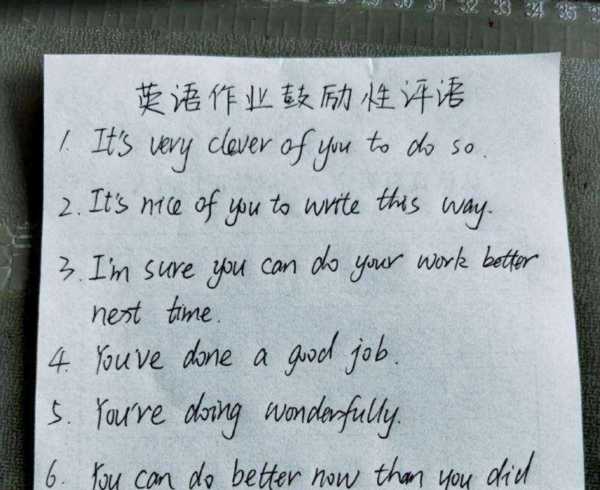 30 31 32 33 34 35
英语作业鼓励性评语
1. It's very clever of you to do so.
2. It's nice of you to write this way.
3. I'm sure you can do your work better
next time.
4. You've done a good job.
5. You're doing wonderfully.
6. You can do better now than you did